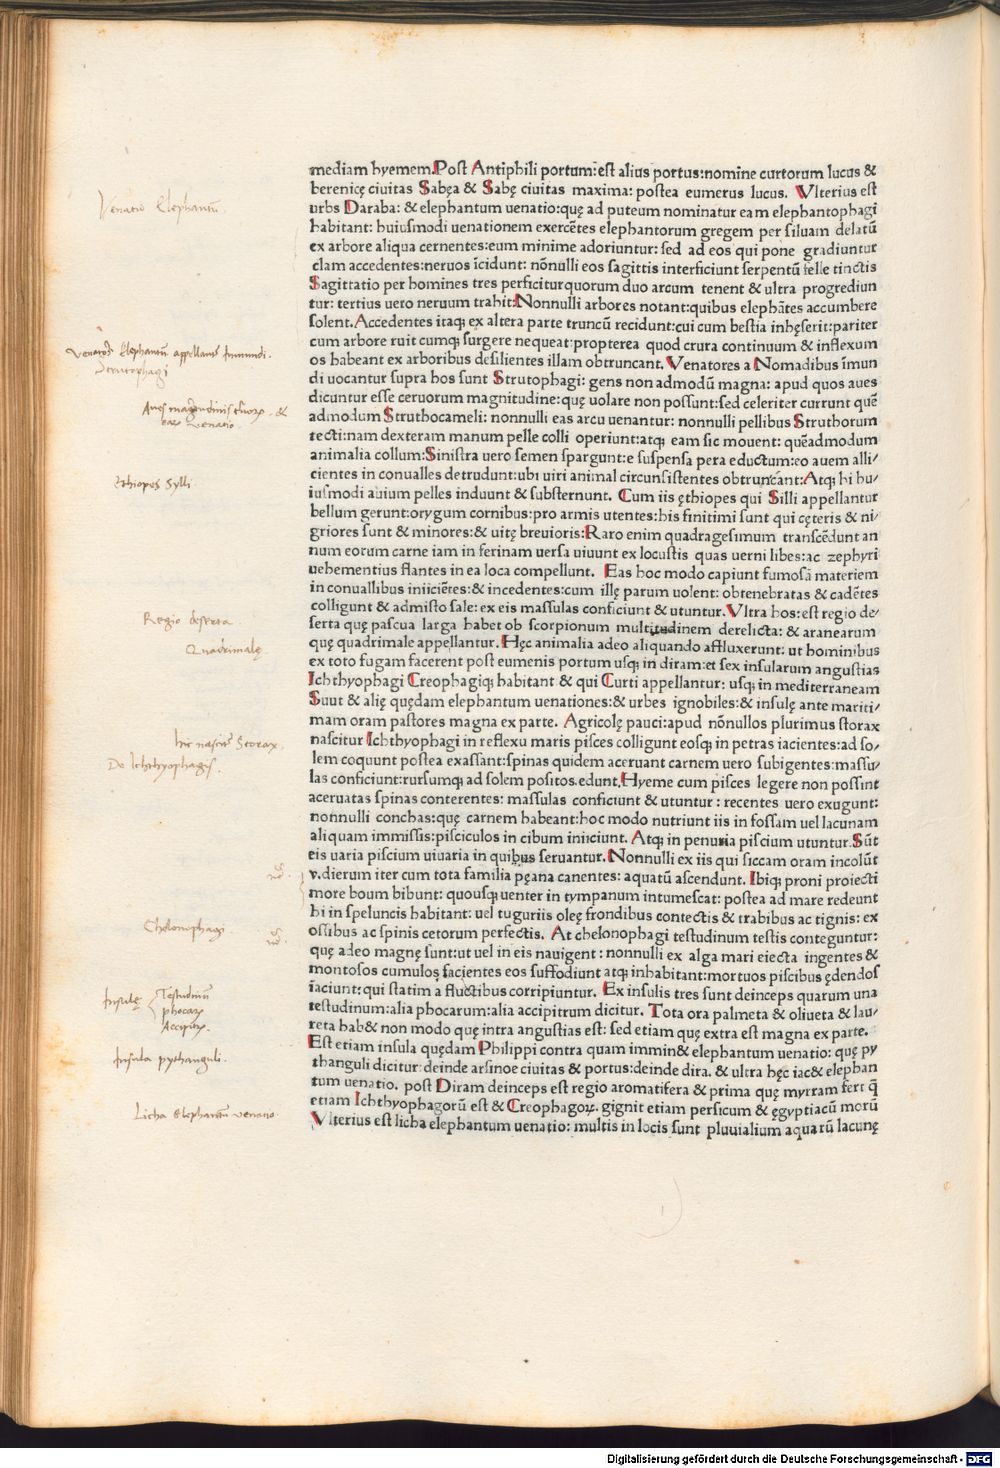 mediam hyemem. Post Antiphili portum: est alius portus: nomine curtorum lucus &
berenicę ciuitas Sabęa & Sabę ciuitas maxima: postea eumerus lucus. Vlterius est
urbs Daraba: & elephantum uenatio: quę ad puteum nominatur eam elephantophagi
habitant: huiusmodi uenationem exercētes elephantorum gregem per siluam delatū
ex arbore aliqua cernentes: eum minime adoriuntur: sed ad eos qui pone gradiuntur
clam accedentes: neruos īcidunt: nōnulli eos sagittis interficiunt serpentū felle tinctis
Sagittatio per homines tres perficitur quorum duo arcum tenent & ultra progrediun
tur: tertius uero neruum trahit: Nonnulli arbores notant: quibus elephātes accumbere
solent. Accedentes itaq; ex altera parte truncū recidunt: cui cum bestia inhęserit: pariter
cum arbore ruit cumq; surgere nequeat: propterea quod crura continuum & inflexum
os habeant ex arboribus desilientes illam obtruncant. Venatores a Nomadibus īmun
di uocantur supra hos sunt Strutophagi: gens non admodū magna: apud quos aues
dicuntur esse ceruorum magnitudine: quę uolare non possunt: sed celeriter currunt quē
admodum Struthocameli: nonnulli eas arcu uenantur: nonnulli pellibus Struthorum
tecti: nam dexteram manum pelle colli operiunt: atq; eam sic mouent: quēadmodum
animalia collum: Sinistra uero semen spargunt: e suspensa pera eductum: eo auem alli/
cientes in conualles detrudunt: ubi uiri animal circunsistentes obtruncant: Atq; hi hu/
iusmodi auium pelles induunt & substernunt. Cum iis ęthiopes qui Silli appellantur
bellum gerunt: orygum cornibus: pro armis utentes: his finitimi sunt qui cęteris & ni/
griores sunt & minores: & uitę breuioris: Raro enim quadragesimum transcēdunt an
num eorum carne iam in ferinam uersa uiuunt ex locustis quas uerni libes: ac zephyri
uehementius flantes in ea loca compellunt. Eas hoc modo capiunt fumosā materiem
in conuallibus iniiciētes: & incedentes: cum illę parum uolent: obtenebratas & cadētes
colligunt & admisto sale: ex eis massulas conficiunt & utuntur. Vltra hos: est regio de/
serta quę pascua larga habet ob scorpionum multitudinem derelicta: & aranearum
quę quadrimale appellantur. Hęc animalia adeo aliquando affluxerunt: ut hominibus
ex toto fugam facerent post eumenis portum usq; in diram: et sex insularum angustias
Ichthyophagi Creophagiq; habitant & qui Curti appellantur: usq; in mediterraneam
Suut & alię quędam elephantum uenationes: & urbes ignobiles: & insulę ante mariti/
mam oram pastores magna ex parte. Agricolę pauci: apud nōnullos plurimus storax
nascitur Ichthyophagi in reflexu maris pisces colligunt eosq; in petras iacientes: ad so/
lem coquunt postea exassant: spinas quidem aceruant carnem uero subigentes: massu/
las conficiunt: rursumq; ad solem positos. edunt. Hyeme cum pisces legere non possint
aceruatas spinas conterentes: massulas conficiunt & utuntur: recentes uero exugunt:
nonnulli conchas: quę carnem habeant: hoc modo nutriunt iis in fossam uel lacunam
aliquam immissis: pisciculos in cibum iniiciunt. Atq; in penuria piscium utuntur. Sūt
eis uaria piscium uiuaria in quibus seruantur. Nonnulli ex iis qui siccam oram incolūt
v. dierum iter cum tota familia pęana canentes: aquatū ascendunt. Ibiq; proni proiecti
more boum bibunt: quousq; uenter in tympanum intumescat: postea ad mare redeunt
hi in speluncis habitant: uel tuguriis oleę frondibus contectis & trabibus ac tignis: ex
ossibus ac spinis cetorum perfectis. At chelonophagi testudinum testis conteguntur:
quę adeo magnę sunt: ut uel in eis nauigent: nonnulli ex alga mari eiecta ingentes &
montosos cumulos facientes eos suffodiunt atq; inhabitant: mortuos piscibus ędendos
iaciunt: qui statim a fluctibus corripiuntur. Ex insulis tres sunt deinceps quarum una
testudinum: alia phocarum: alia accipitrum dicitur. Tota ora palmeta & oliueta & lau/
reta hab& non modo quę intra angustias est: sed etiam quę extra est magna ex parte.
Est etiam insula quędam Philippi contra quam immin& elephantum uenatio: quę py
thanguli dicitur: deinde arsinoe ciuitas & portus: deinde dira. & ultra hęc iac& elephan
tum uenatio. post Diram deinceps est regio aromatifera & prima quę myrram fert q̄
etiam Ichthyophagorū est & Creophagoꝝ. gignit etiam persicum & ęgyptiacū morū
Vlterius est licha elephantum uenatio: multis in locis sunt pluuialium aquarū lacunę
Venatio Elephantū.
Venatores Elephantū appellantur Immundi.
Strutophagi
Aues magnitudinis ceruorꝝ. &
earꝝ Venatio.
Ethiopes Sylli
Regio deserta.
Quadrimalę
hic nascitur Storax.
De Ichthyophagis.
Chelonophagi
Insulę
Testudinū
phocarꝝ
Accipitrꝝ.
Insula pythanguli.
Licha Elephantū venatio.
Digitalisierung gefördert durch die Deutsche Forschungsgemeinschaft - DFG